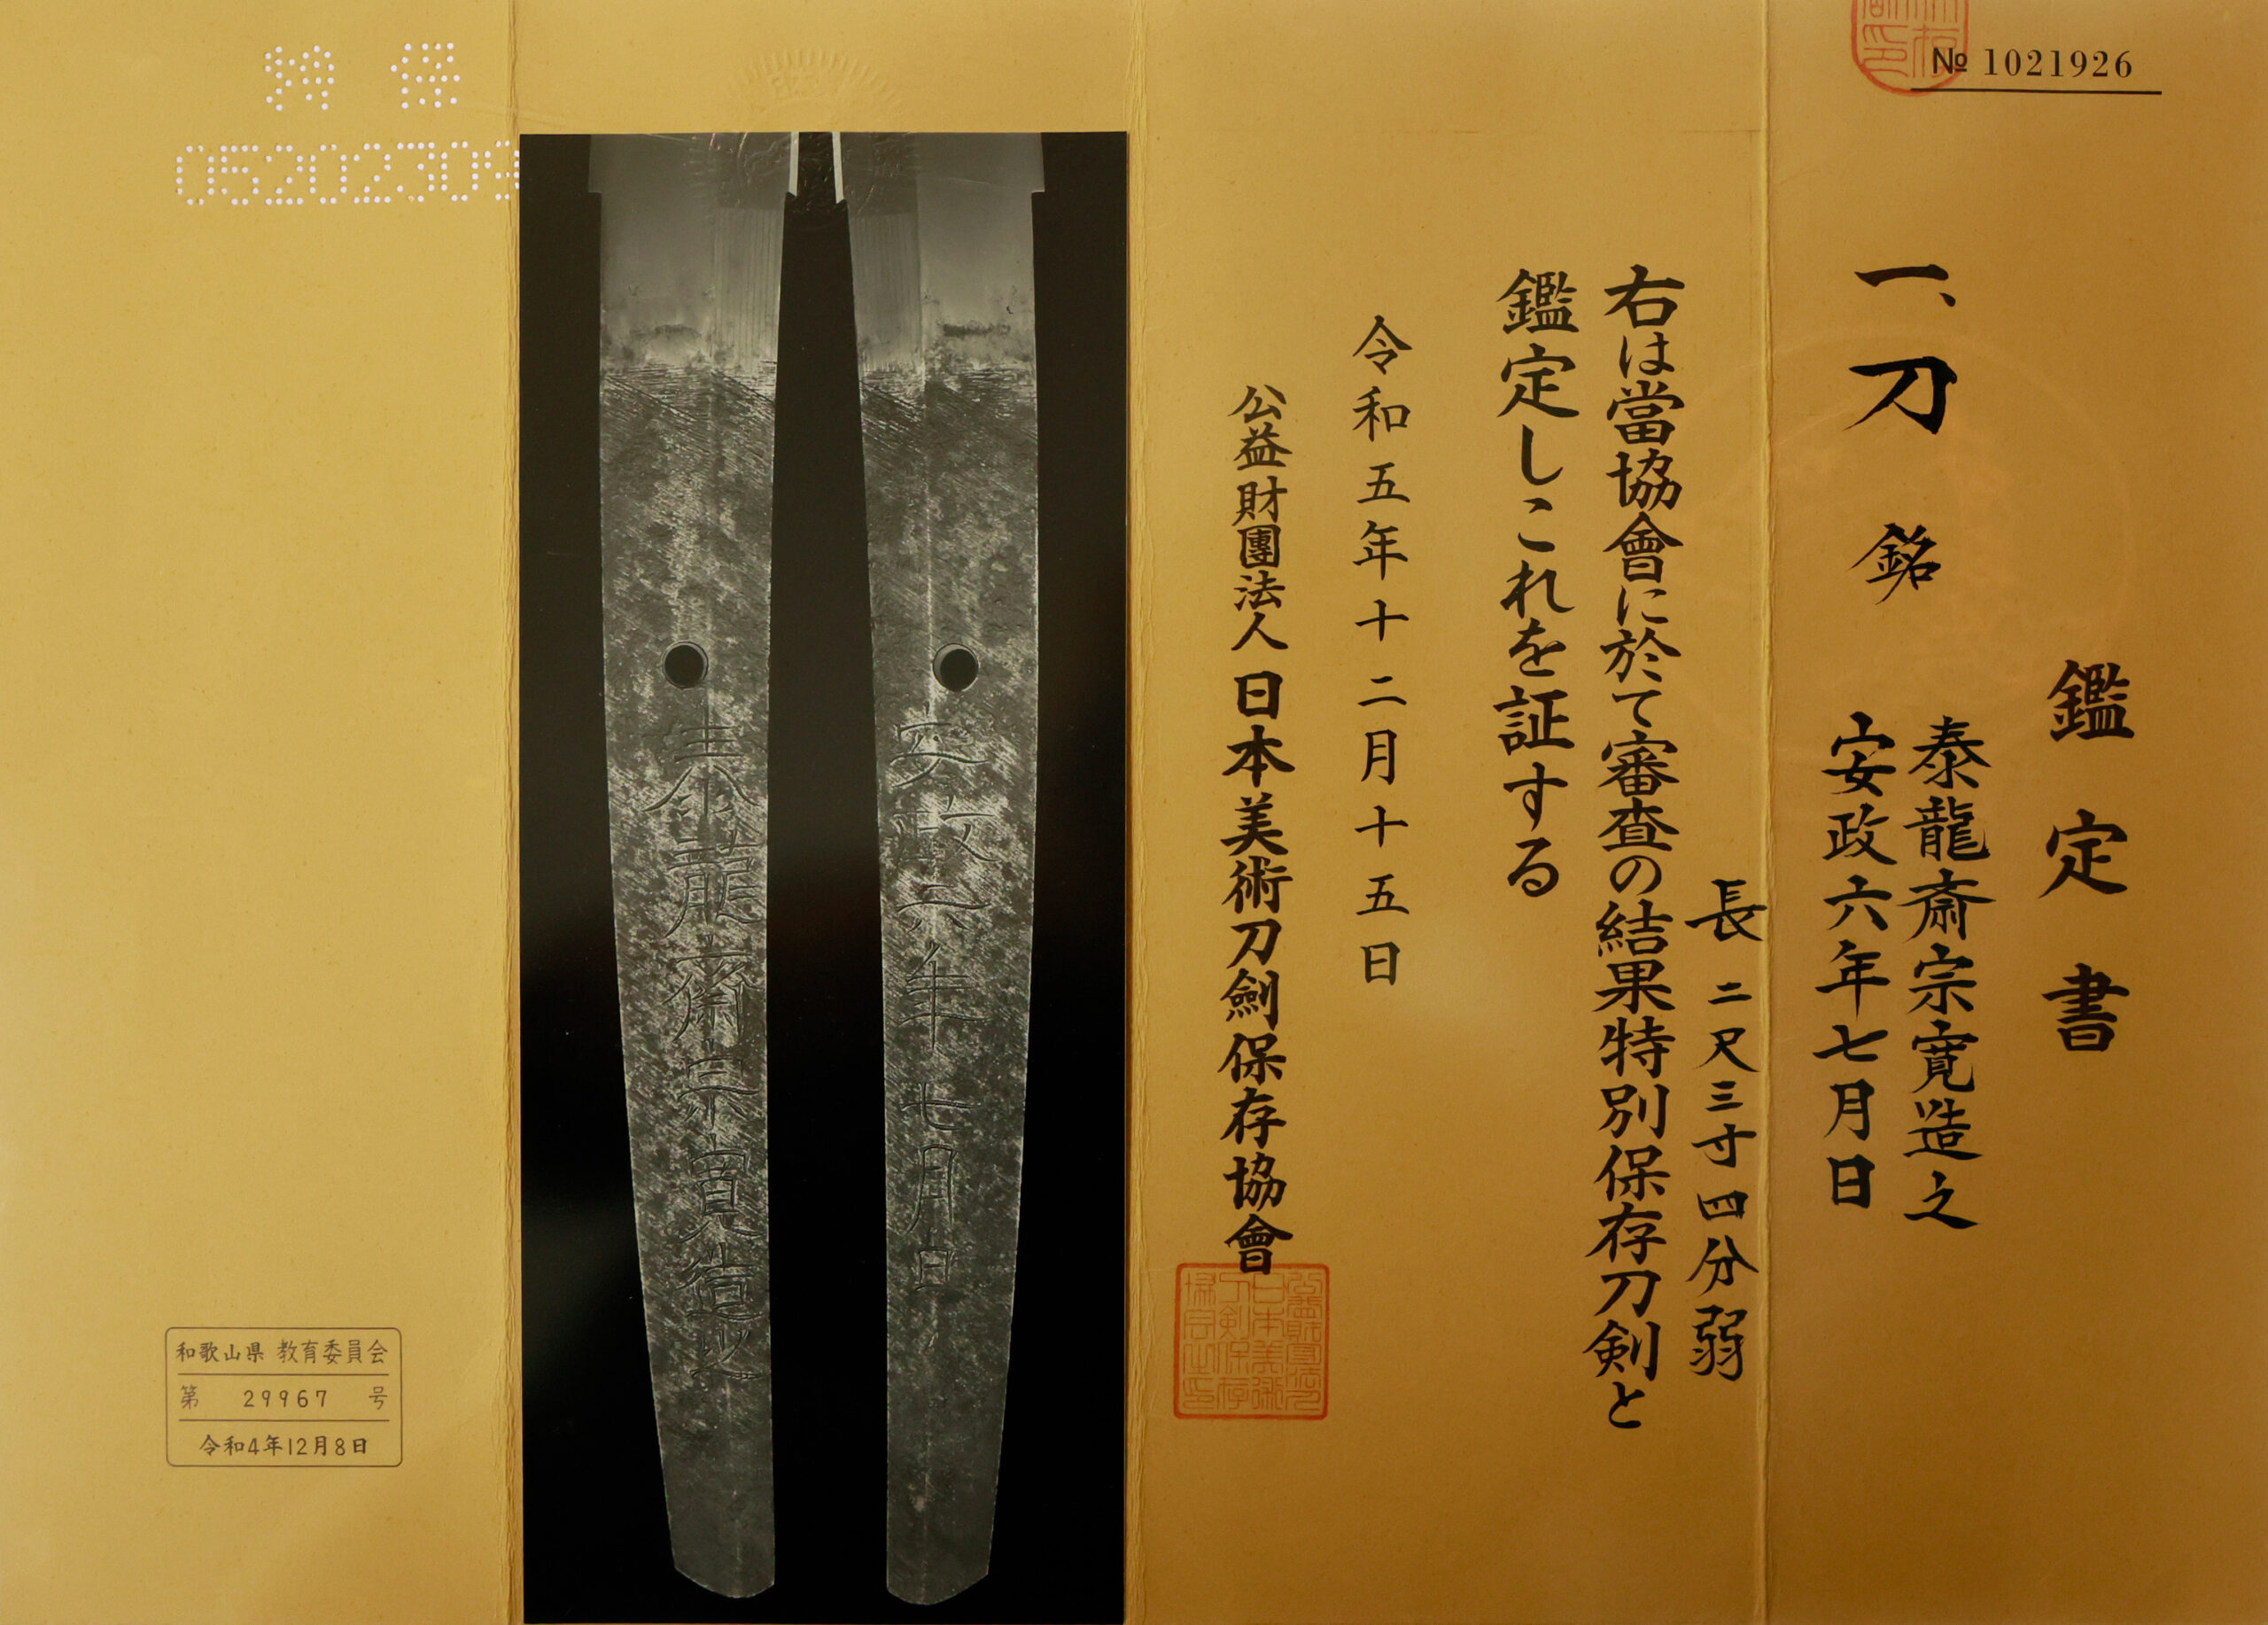 № 1021926
鑑定書
一、刀 銘
泰龍斎宗寛造之
安政六年七月日
長 二尺三寸四分弱
右は當協會に於て審査の結果特別保存刀剣と
鑑定しこれを証する
令和五年十二月十五日
公益財團法人 日本美術刀劍保存協會
安政六年七月日
泰龍斎宗寛造之
特 保
05202309
和歌山県 教育委員会
第 29967 号
令和4年12月8日